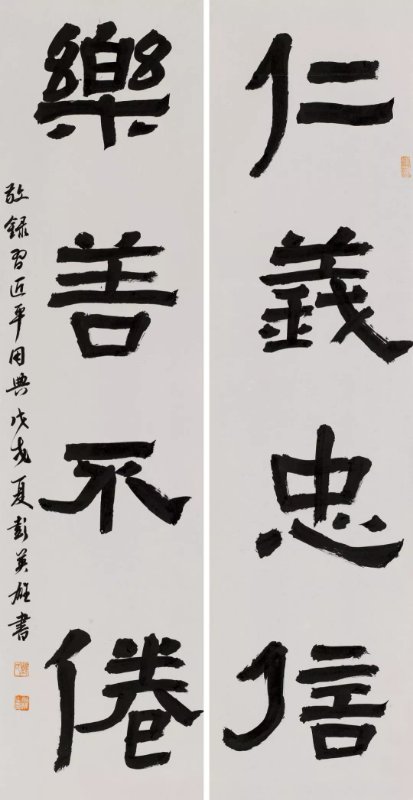 仁義忠信
樂善不倦
敬錄習近平用典戊戌夏彭英雄書